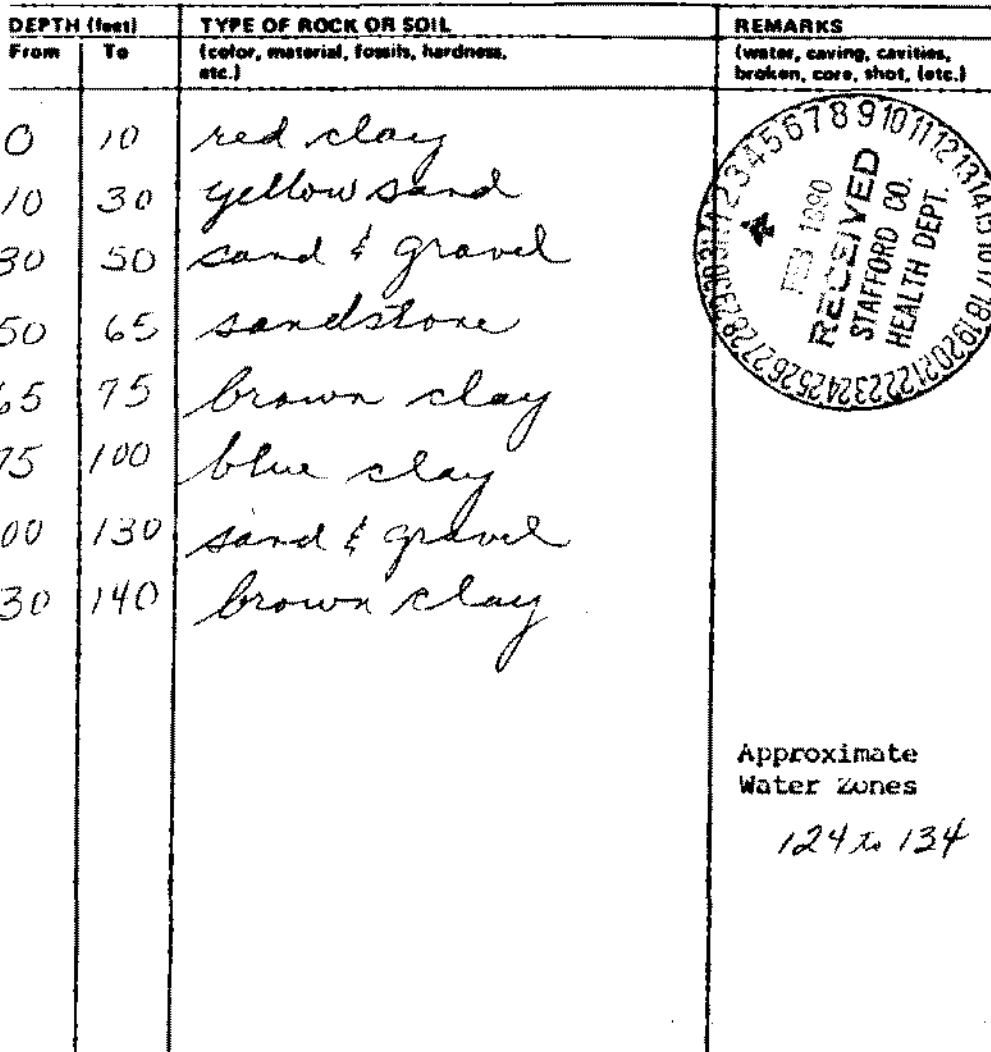 DEPTH (feet) TYPE OF ROCK OR SOIL REMARKS
From To (color, material, fossils, hardness, (water, caving, cavities,
etc.) broken, core, shot, (etc.)
0 10 red clay
10 30 yellow sand
30 50 sand & gravel
50 65 sandstone
65 75 brown clay
75 100 blue clay
00 130 sand & gravel
30 140 brown clay
1 2 3 4 5 6 7 8 9 10 11 12 13 14 15 16 17 18 19 20 21 22 23 24 25 26 27 28 29 30 31
RECEIVED
STAFFORD CO.
HEALTH DEPT.
Approximate
Water Zones
124 to 134